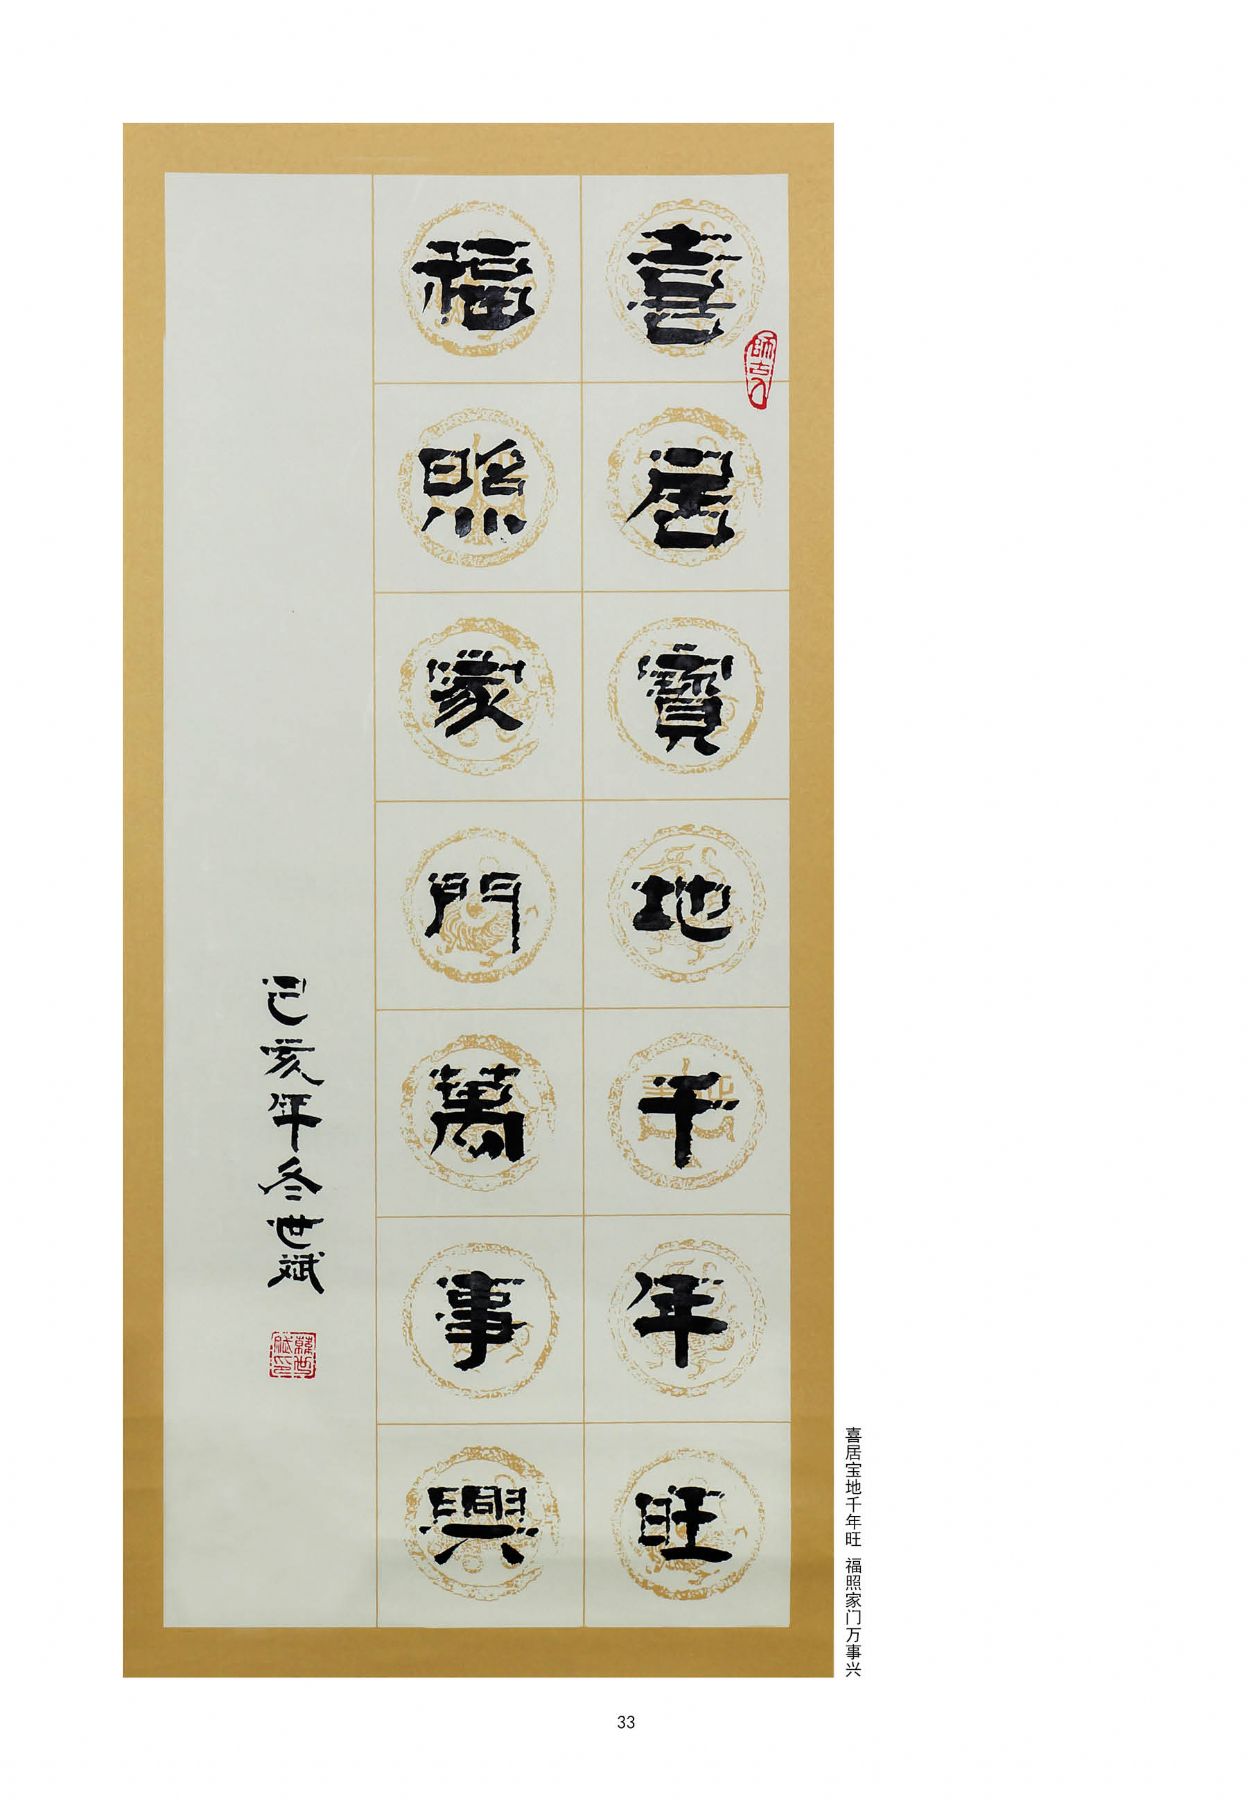 喜居寶地千年旺
福照家門萬事興
己亥年冬世斌
師古人
喜居宝地千年旺 福照家门万事兴
33